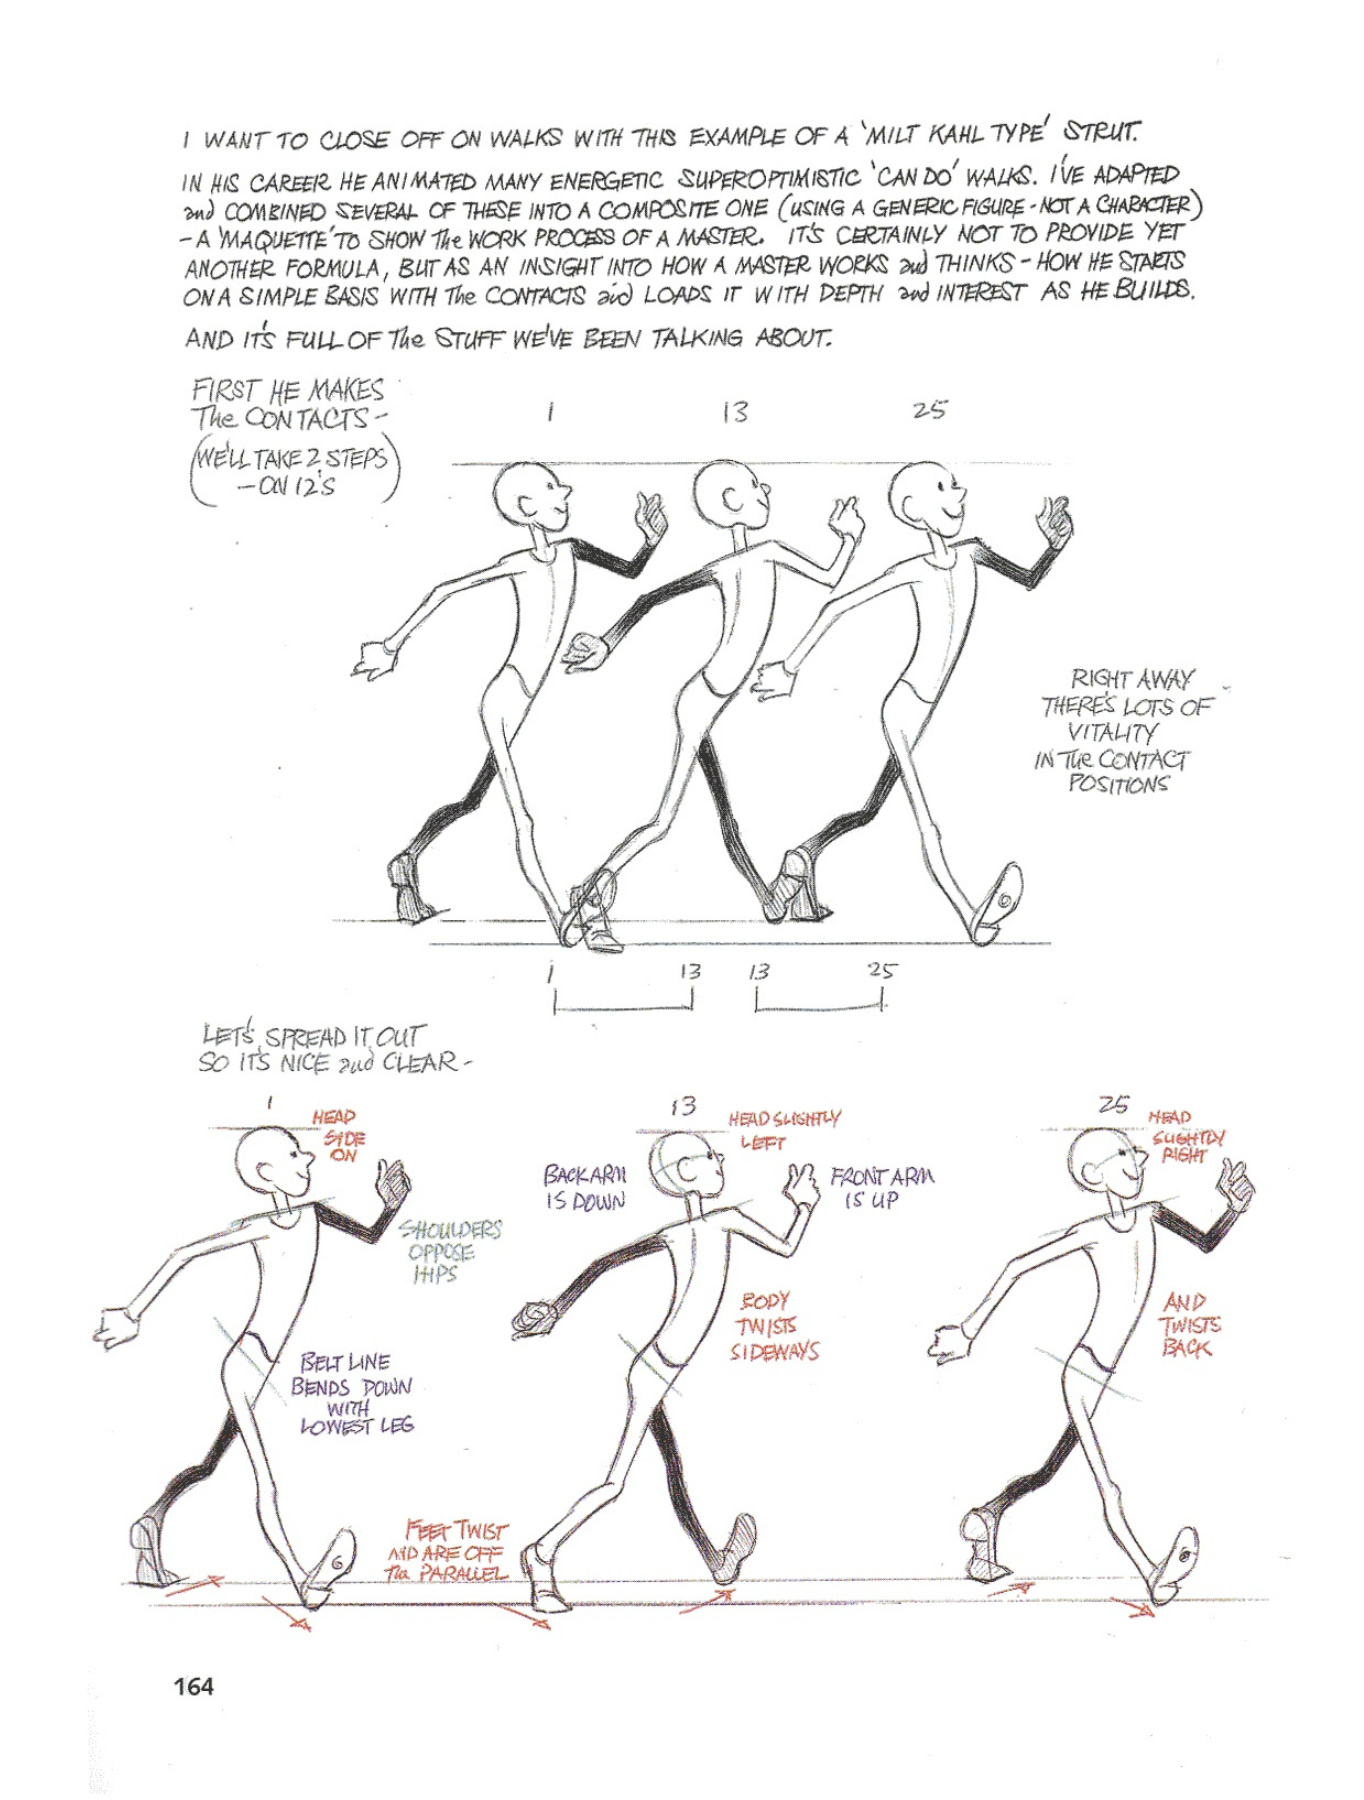 I WANT TO CLOSE OFF ON WALKS WITH THIS EXAMPLE OF A 'MILT KAHL TYPE' STRUT.
IN HIS CAREER HE ANIMATED MANY ENERGETIC SUPEROPTIMISTIC 'CAN DO' WALKS. I'VE ADAPTED
and COMBINED SEVERAL OF THESE INTO A COMPOSITE ONE (USING A GENERIC FIGURE - NOT A CHARACTER)
- A 'MAQUETTE' TO SHOW The WORK PROCESS OF A MASTER. IT'S CERTAINLY NOT TO PROVIDE YET
ANOTHER FORMULA, BUT AS AN INSIGHT INTO HOW A MASTER WORKS and THINKS - HOW HE STARTS
ON A SIMPLE BASIS WITH The CONTACTS and LOADS IT WITH DEPTH and INTEREST AS HE BUILDS.
AND IT'S FULL OF The STUFF WE'VE BEEN TALKING ABOUT.
FIRST HE MAKES
The CONTACTS -
(WE'LL TAKE 2 STEPS
- ON 12'S)
1 13 25
RIGHT AWAY
THERE'S LOTS OF
VITALITY
IN The CONTACT
POSITIONS
1 13 13 25
LET'S SPREAD IT OUT
SO IT'S NICE and CLEAR -
1
HEAD
SIDE
ON
SHOULDERS
OPPOSE
HIPS
BELT LINE
BENDS DOWN
WITH
LOWEST LEG
FEET TWIST
AND ARE OFF
The PARALLEL
13
HEAD SLIGHTLY
LEFT
BACK ARM
IS DOWN
FRONT ARM
IS UP
BODY
TWISTS
SIDEWAYS
25
HEAD
SLIGHTLY
RIGHT
AND
TWISTS
BACK
164